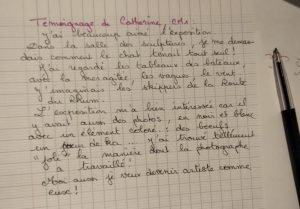 Témoignage de Catherine, CM1.
J'ai beaucoup aimé l'exposition
Dans la salle des sculptures, je me deman-
dais comment le chat tenait tout seul !
J'ai regardé les tableaux des bateaux,
avec la mer agitée, les vagues, le vent.
J'imaginais les skippers de la Route
du Rhum.
L'exposition m'a bien intéressée car il
y avait aussi des photos, en noir et blanc
avec un élément coloré : des bœufs
un de J'ai trouvé tellement
"joli" la manière dont la photographe
a travaillé !
Moi aussi je veux devenir artiste comme
eux !